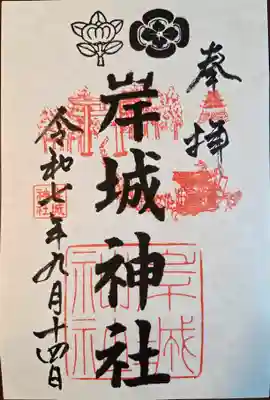 奉拝
岸城神社
令和七年九月十四日
岸城
神社